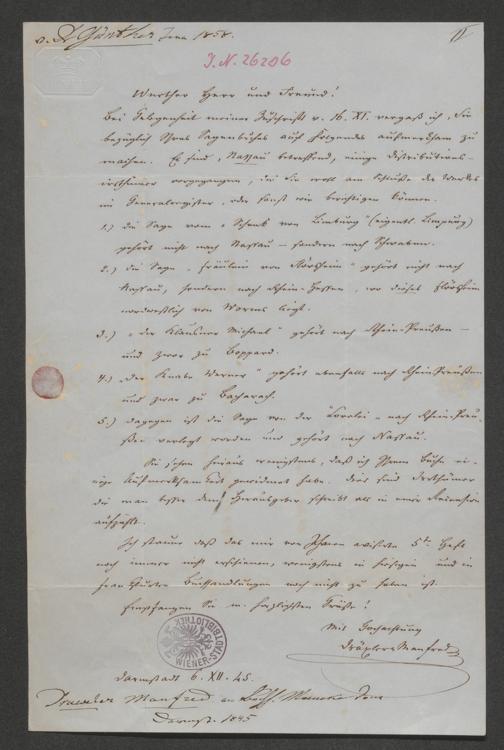 v. Dr Günther Jena 1858.
J.N. 26206
Werther Herr und Freund!
Bei Gelegenheit meiner Zuschrift v. 16. XI. vergaß ich, Sie
bezüglich Ihres Sagenbuches auf Folgendes aufmerksam zu
machen. Es sind, Nassau betreffend, einige Distributions-
irrthümer vorgegangen, die Sie wohl am Schluße des Werkes
im Generalregister, oder sonst wie berichtigen können.
1.) die Sage vom „Schenk von Limburg" (eigentl. Limpurg)
gehört nicht nach Nassau – sondern nach Schwaben.
2.) die Sage „Fräulein von Flörsheim" gehört nicht nach
Nassau, sondern nach Rhein-Hessen, wo dieses Flörsheim
nordwestlich von Worms liegt.
3.) „der Klausner Michael" gehört nach Rhein-Preußen –
und zwar zu Boppard.
4.) „Der Knabe Werner" gehört ebenfalls nach Rhein-Preußen
und zwar zu Bacharach.
5.) dagegen ist die Sage von der "Lorelei" nach Rhein-Preu-
ßen verlegt worden und gehört nach Nassau.
Sie sehen hieraus wenigstens, daß ich Ihrem Buche ei-
nige Aufmerksamkeit gewidmet habe. dies sind Irrthümer
die man besser dem Herausgeber schreibt als in einer Recension
aufzählt.
Ich staune daß das mir von Ihnen avisirte 5te Heft
noch immer nicht erschienen, wenigstens in hiesigen und in
Buchhandlungen noch nicht zu haben ist.
Empfangen Sie m. herzlichsten Grüße!
Mit Hochachtung
Dräxler-Manfred
WIENER-STADTBIBLIOTHEK
Darmstadt 6. XII. 45.
Draexler Manfred an Jena
Darmst. 1845